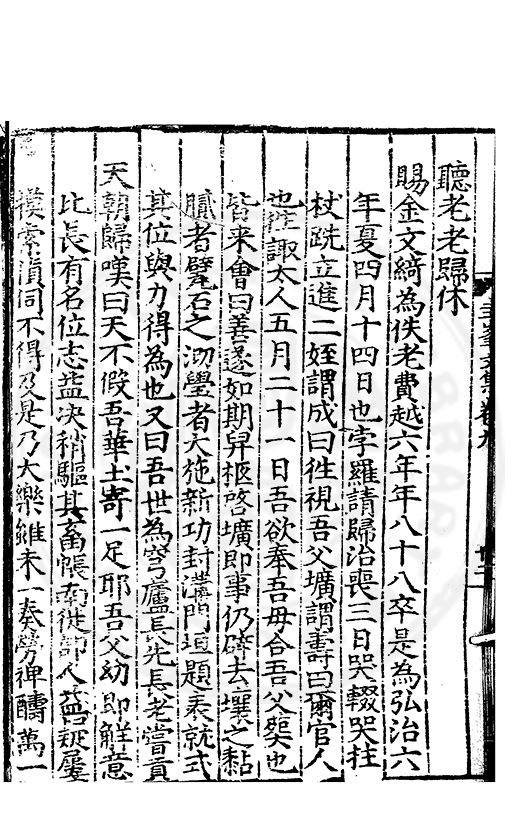 聽老老歸休
賜金文綺為佚老費越六年年八十八卒是為弘治六
年夏四月十四日也孛羅請歸治喪三日哭輟哭拄
杖跣立進二姪謂成曰徃視吾父壙謂壽曰爾官人
也進諏太人五月二十一日吾欲奉吾母合吾父㷀也
皆来會曰善遂如期舁柩啓壙即事仍磚去壤之黏
膩者甓石之泐璺者大施新功封溝門垣題表就式
其位與力得為也又曰吾世為穹廬長先長老嘗貢
天朝歸嘆曰天不假吾華土寄一足耶吾父幼即解意
比長有名位志益决稍驅其畜帳南徙部人
摸索瀆同不得及是乃大樂雖未一奏勞裨醻萬一
圭峯文集卷九